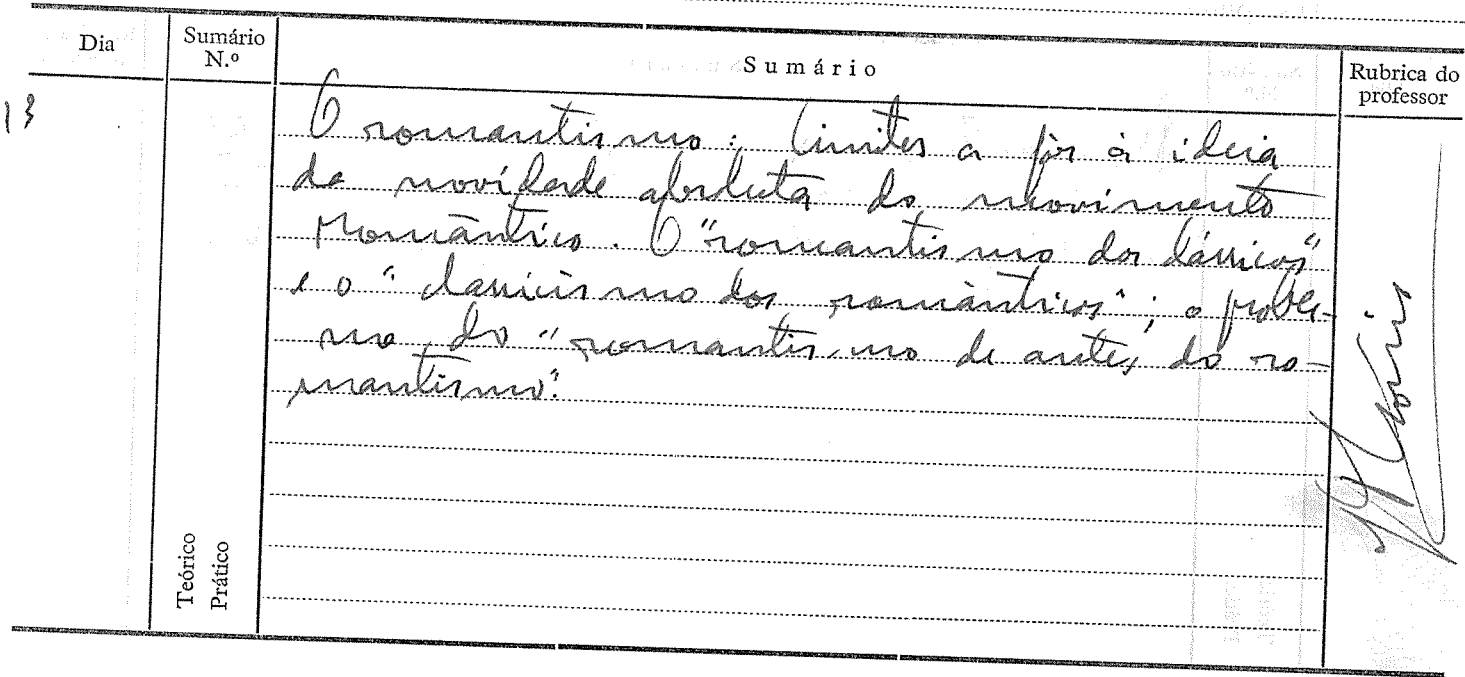 Dia
Sumário
N.º
Sumário
Rubrica do
professor
13
O romantismo: limites a pôr à ideia
da novidade absoluta do movimento
romântico. O "romantismo dos clássicos"
e o "classicismo dos românticos"; o proble-
ma do "romantismo de antes do ro-
mantismo".
Teórico
Prático